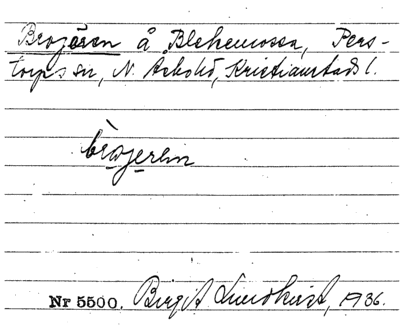 Brojören å Blekemossa, Pers-
torps sn, N. Åsbohd, Kristianstads l.
brojeren
Nr 5500. Birgit Lundkvist, 1936.